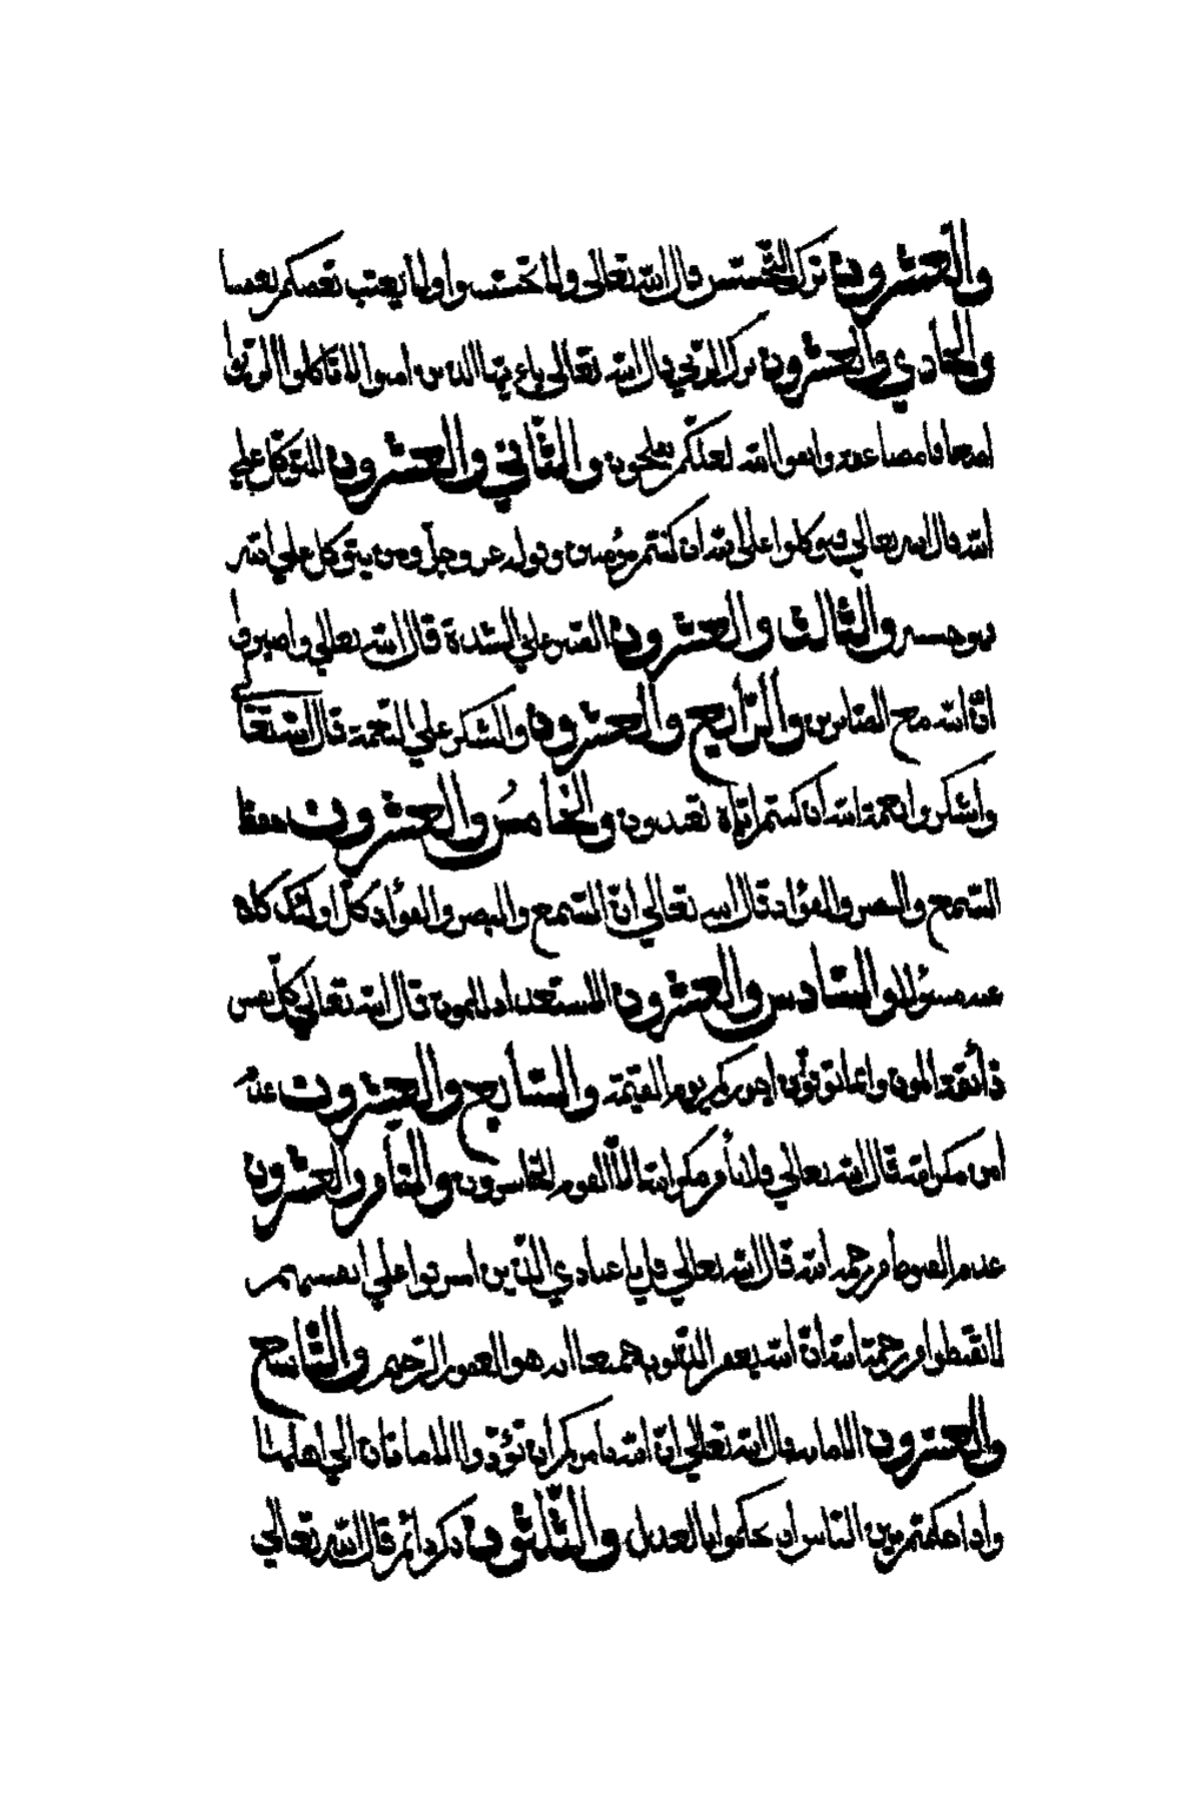 والعشرون ترك التجسس قال الله تعالى ولا تجسسوا ولا يغتب بعضكم بعضا
والحادي والعشرون ترك الربي قال الله تعالى يا ءيها الذين امنوا لا تاكلوا الربوا
اضعافا مضاعفة واتقوا الله لعلكم تفلحون والثاني والعشرون التوكل علي
الله قال الله تعالي فتوكلوا على الله ان كنتم مؤمنين وقوله عز وجل ومن يتوكل علي الله
فهو حسبه والثالث والعشرون الصبر علي الشدة قال الله تعالي واصبروا
ان الله مع الصابرين والرابع والعشرون والشكر علي النعمة قال الله تعالي
واشكروا نعمة الله ان كنتم اياه تعبدون والخامس والعشرون حفظ
السمع والبصر والفؤاد قال الله تعالي ان السمع والبصر والفؤاد كل اولئك كان
عنه مسئولا والسادس والعشرون الاستعداد للموت قال الله تعالي كل نفس
ذائقة الموت وانما توفون اجوركم يوم القيمة والسابع والعشرون عدم
امن مكر الله قال الله تعالي فلا يأمن مكر الله الا القوم الخاسرون والثامن والعشرون
عدم القنوط من رحمة الله قال الله تعالي قل يا عبادي الذين اسرفوا علي انفسهم
لا تقنطوا من رحمة الله ان الله يغفر الذنوب جميعا انه هو الغفور الرحيم والتاسع
والعشرون الامانة قال الله تعالي ان الله يأمركم ان تؤدوا الامانات الي اهلها
واذا حكمتم بين الناس ان تحكموا بالعدل والثلثون ذكر دائم قال الله تعالي